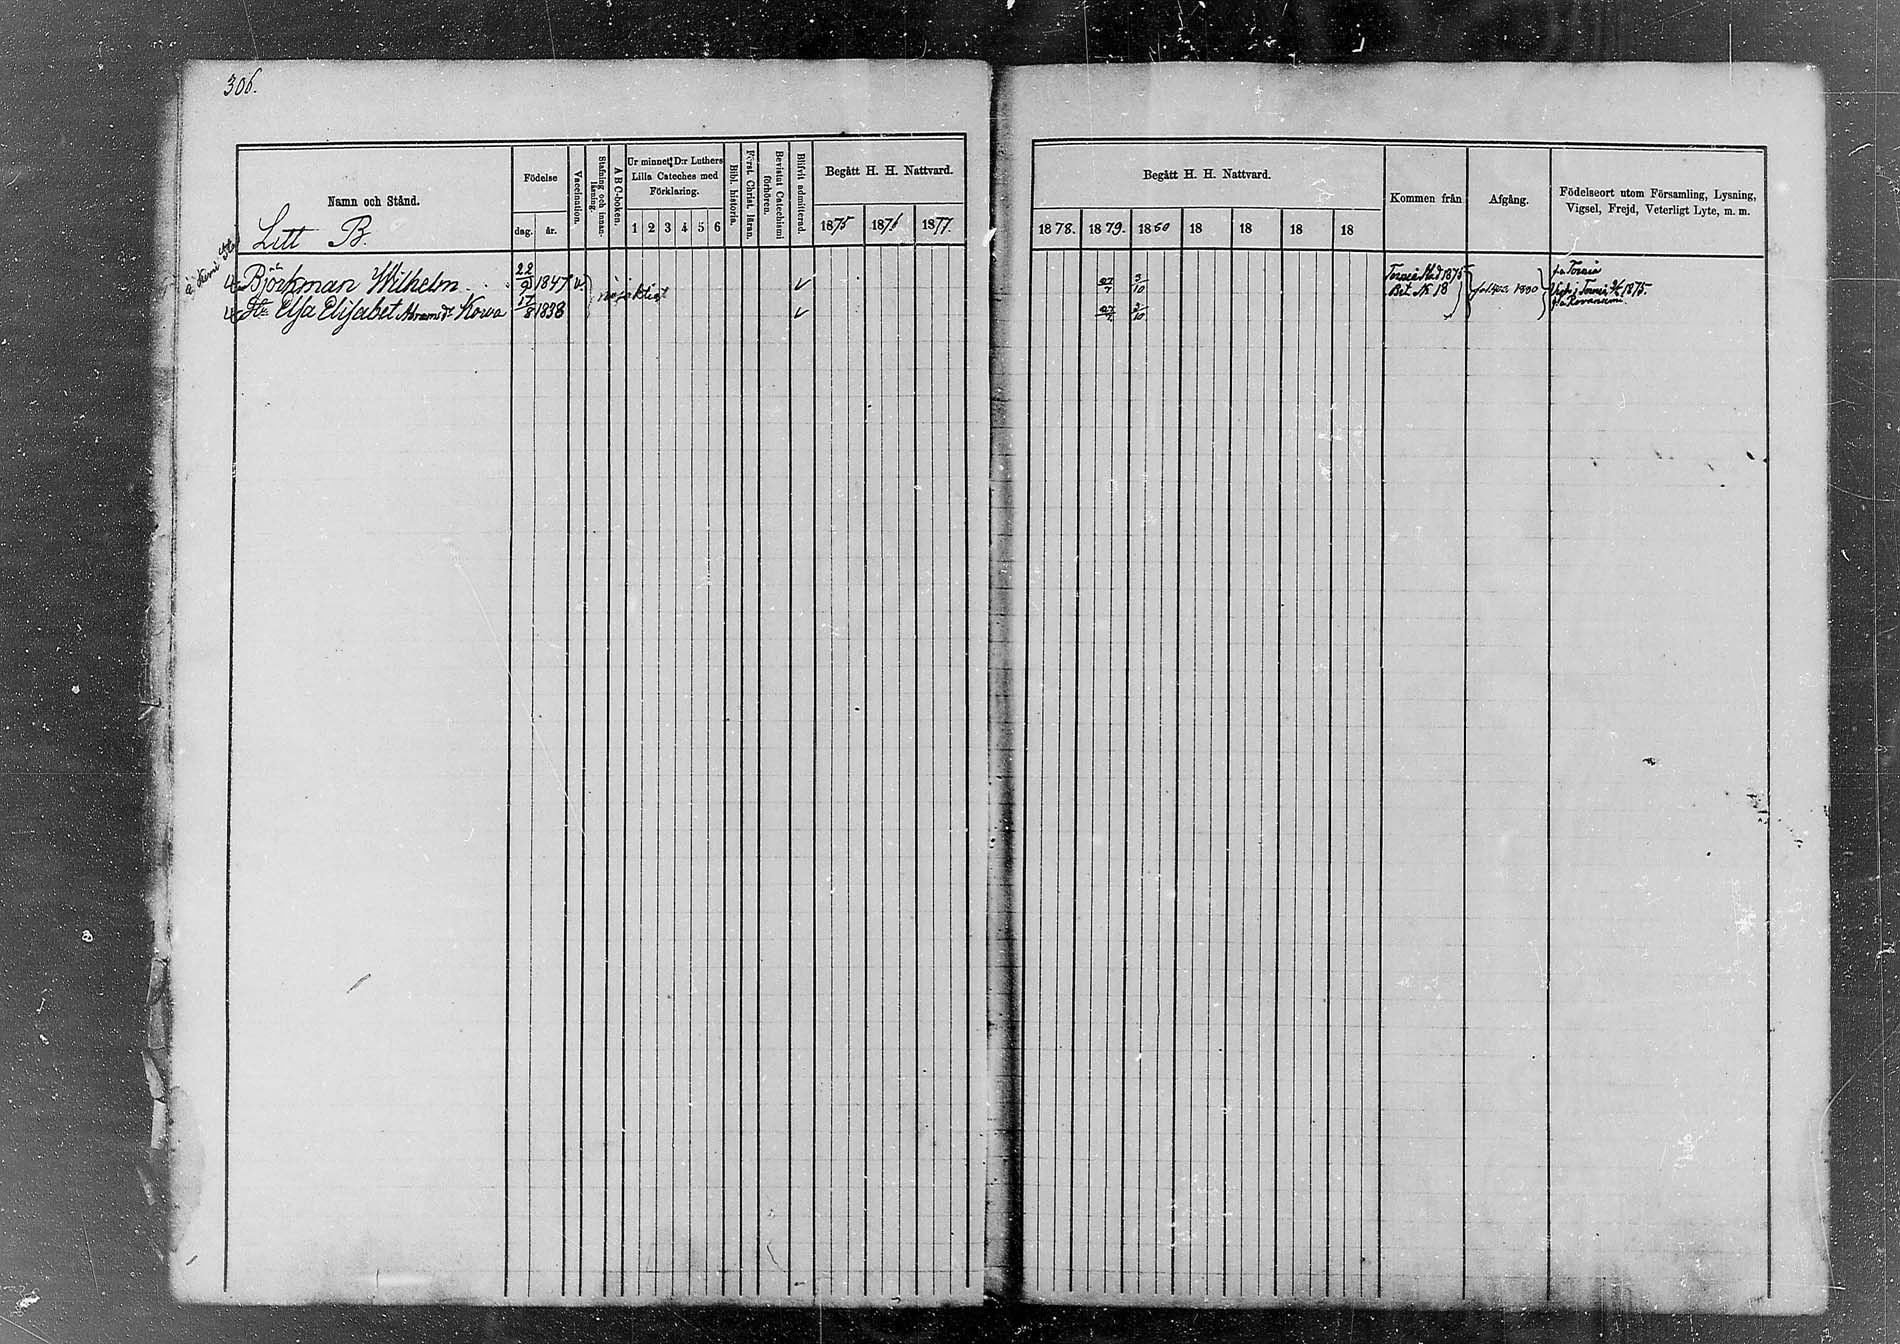 306.
Namn och Stånd.
Litt B.
Födelse
dag.
år.
Vaccination.
Stafning och innan-
läsning.
A B C-boken.
Ur minnet D:r Luthers
Lilla Cateches med
Förklaring.
1 2 3 4 5 6
Bibl. historia.
Först. Christ. läran.
Bevistat Catechismi
förhören.
Blifvit admitterad.
Begått H. H. Nattvard.
1875 1876 1877.
Begått H. H. Nattvard.
1878. 1879. 1880 18 18 18 18
Kommen från
Afgång.
Födelseort utom Församling, Lysning,
Vigsel, Frejd, Veterligt Lyte, m. m.
Björkman Wilhelm 22/9 1847 v v 27/7 3/10
H:u Elsa Elisabet Abramsd:r Kowa 17/8 1838 v 27/7 3/10
Torneå Stad 1875
Bet. N 18
1880
fr. Torneå
Vigde i Torneå 1875.
Rovaniemi